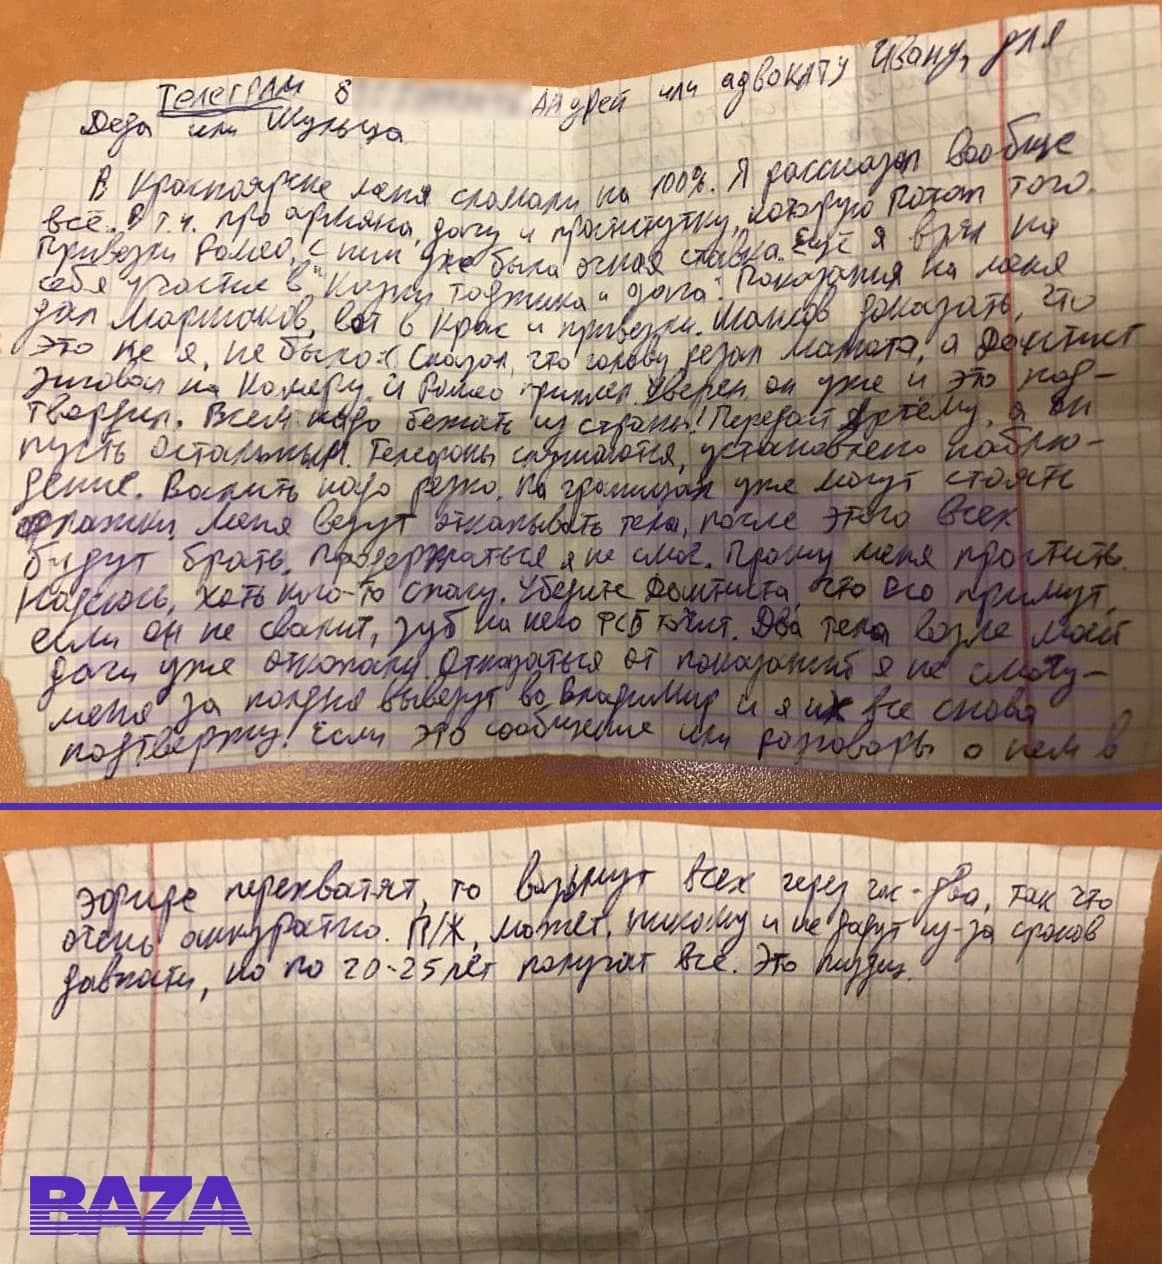 Телеграм 8 Андрей или адвокату Ивану, для
Деда или Шульца
В Красноярске меня сломали на 100%. Я рассказал вообще
всё. В т.ч. про армяна, дачу и проститутку, которую Потом того.
Привезли Ромео, с ним уже была очная ставка. Ещё я взял на
себя участие в "Казни таджика и дага". Показания на меня
дал Маршаков, вот в Крас и привезли. Шансов доказать, что
это не я, не было:( Сказал, что голову резал Матата, а Дантист
зиговал на камеру. И Ромео Уверен он уже и это под-
твердил. Всем надо бежать из страны! Передай Артёму, а он
пусть остальным. Телефоны слушаются, установлено наблю-
дение. Валить надо резко. На границах уже могут стоять
флажки. Меня везут откапывать тела, после этого всех
будут брать. Продержаться я не смог. Прошу меня простить.
Надеюсь, хоть кого-то спасу. Убедите Дантиста, что его примут,
если он не свалит, зуб на него ФСБ точит. Два тела возле моей
дачи уже откопали. Отказаться от показаний я не смогу-
меня за полдня вывезут во Владимир и я их все снова
подтвержу! Если это сообщение или разговоры о нем в
эфире перехватят, то возьмут всех через час-два, так что
очень аккуратно. П/Ж, может, никому и не дадут из-за сроков
давности, но по 20-25 лет получат все. Это пиздец.
BAZA